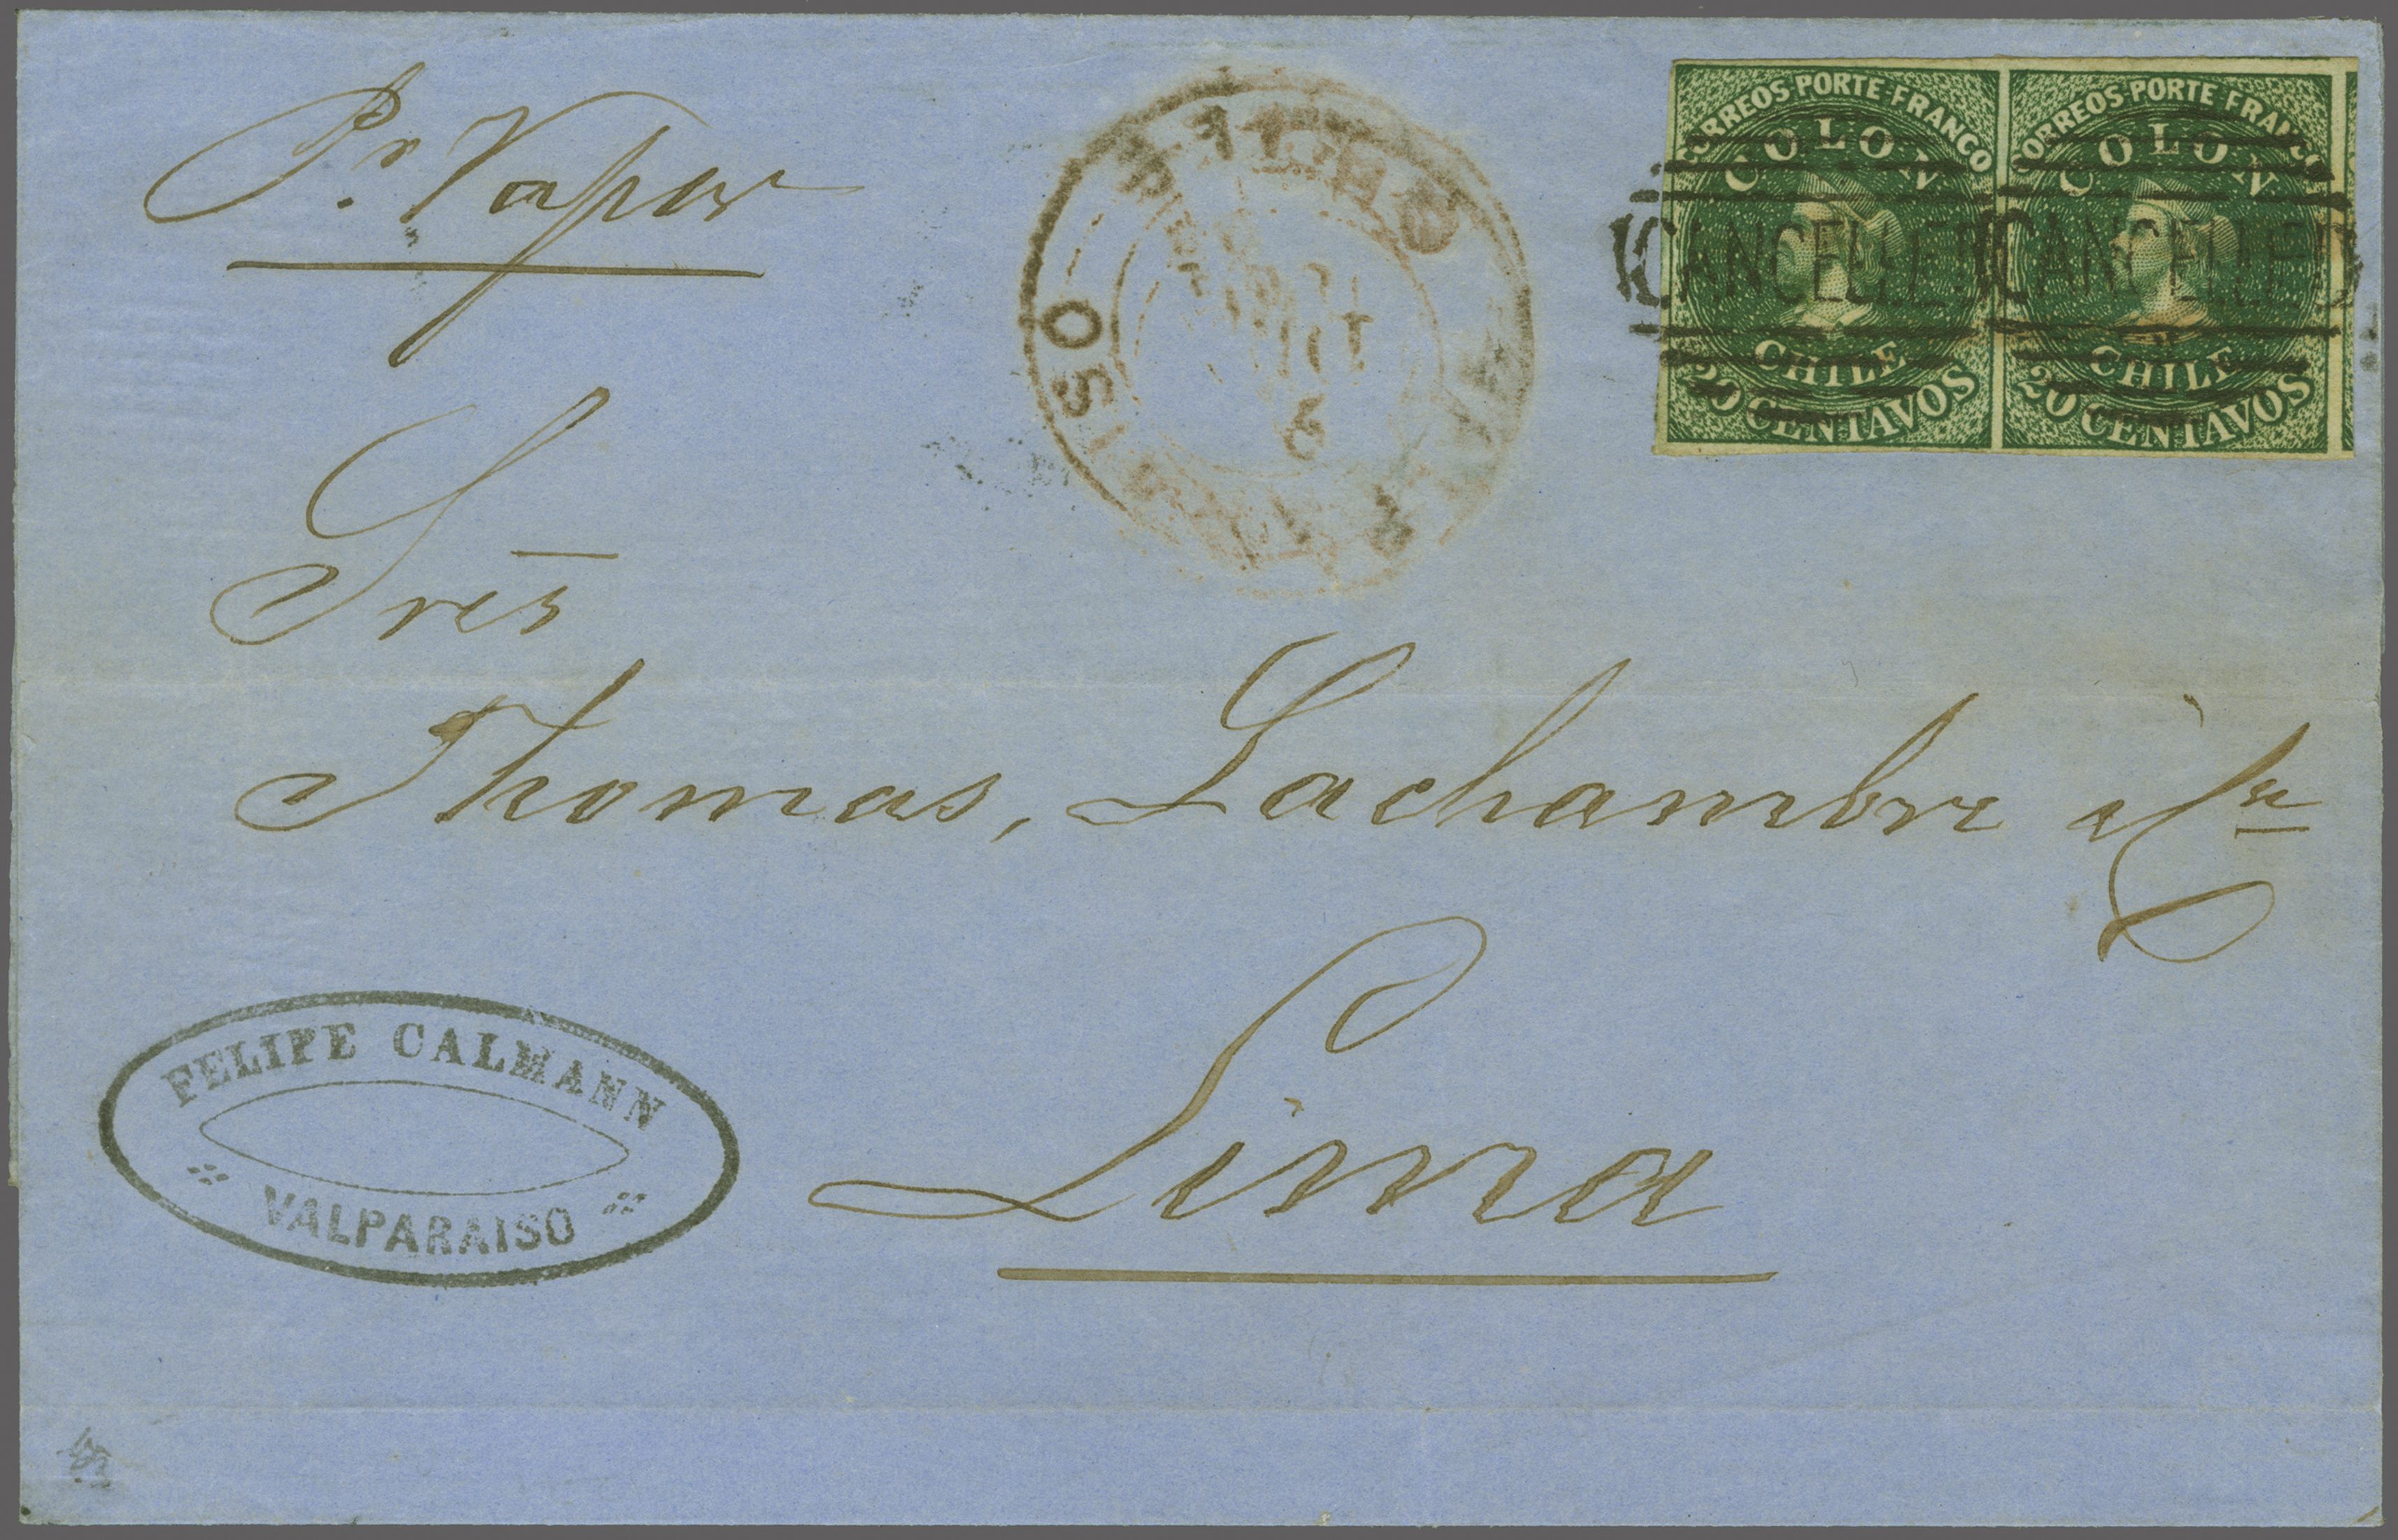 Pr. Vapor
CHILE
VALPARAISO
CORREOS PORTE FRANCO
COLON
CHILE
20 CENTAVOS
CORREOS PORTE FRANCO
COLON
CHILE
20 CENTAVOS
CANCELLED CANCELLED
Sres
Thomas, Lachambre &Ca
Lima
FELIPE CALMANN
VALPARAISO